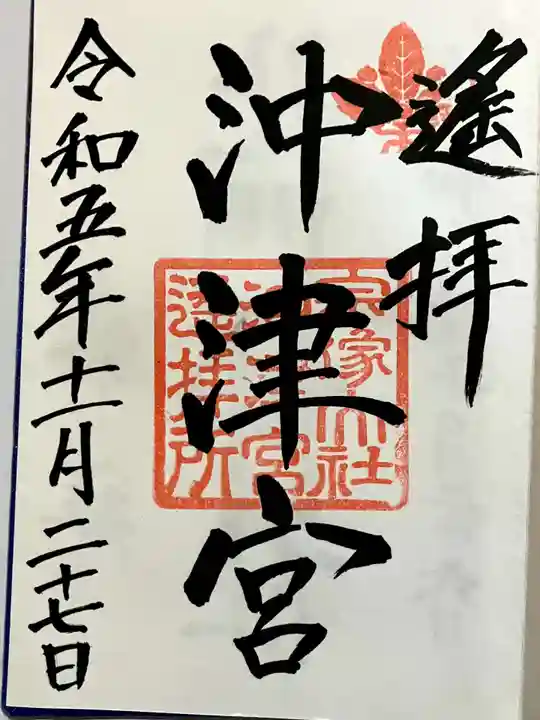 遙拝
沖津宮
宗像大社
沖津宮
遙拝所
令和五年十一月二十七日